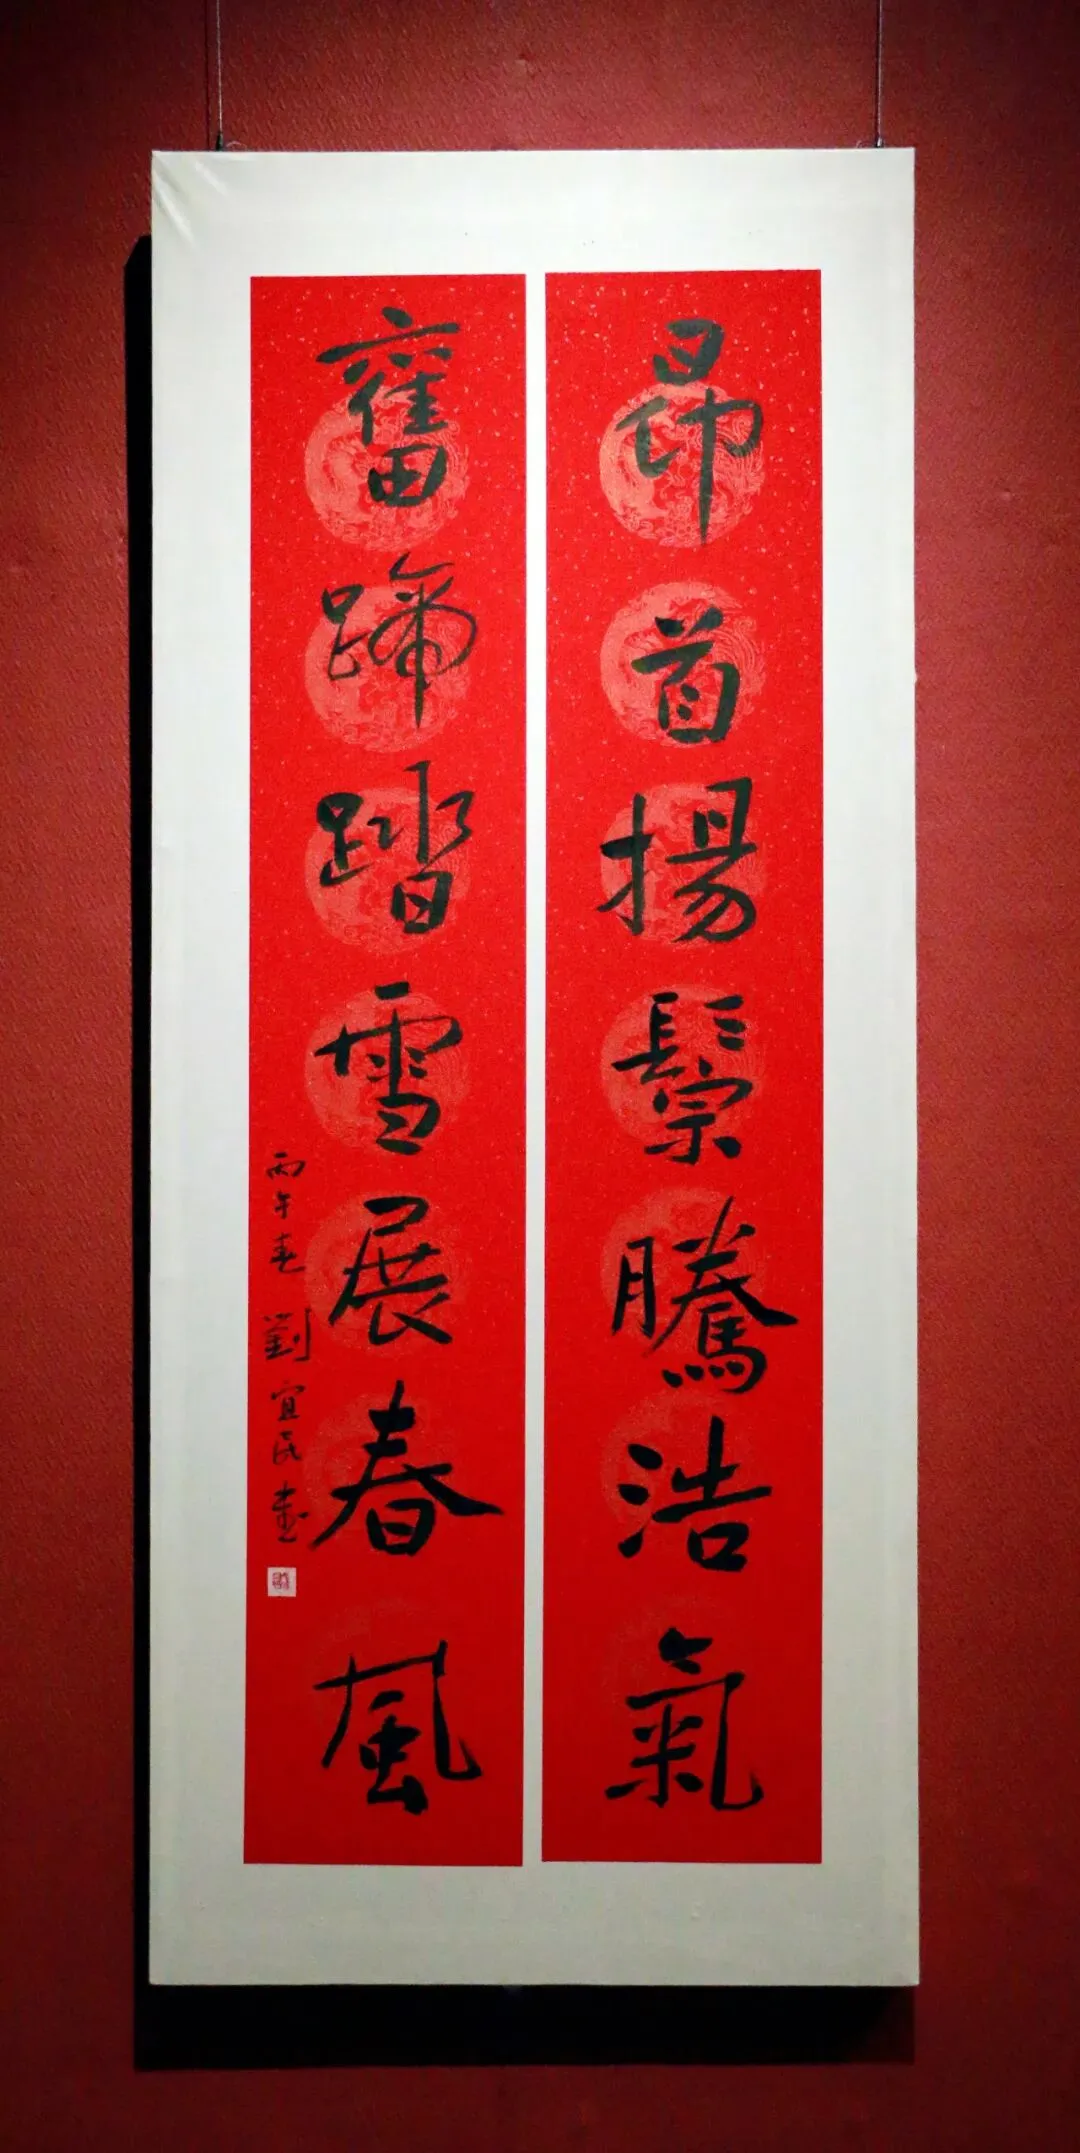 昂首揚鬃騰浩氣
奮蹄踏雪展春風
丙午春劉宜民書